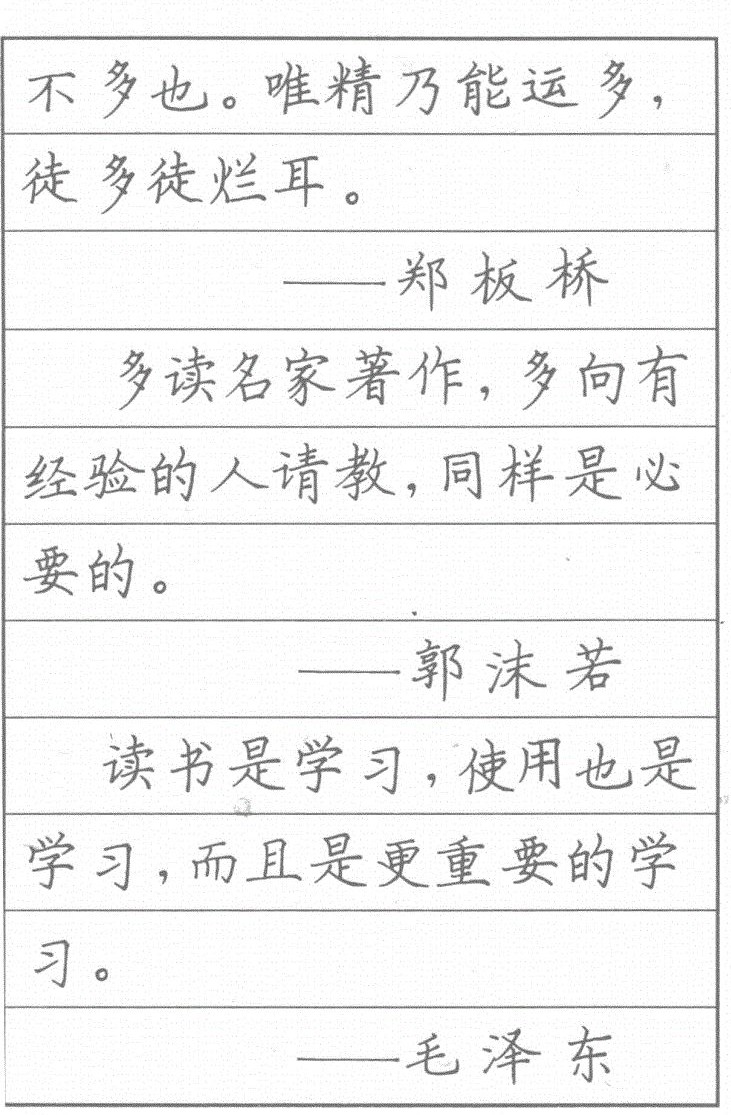 不多也。唯精乃能运多，
徒多徒烂耳。
——郑板桥
多读名家著作，多向有
经验的人请教，同样是必
要的。
——郭沫若
读书是学习，使用也是
学习，而且是更重要的学
习。
——毛泽东